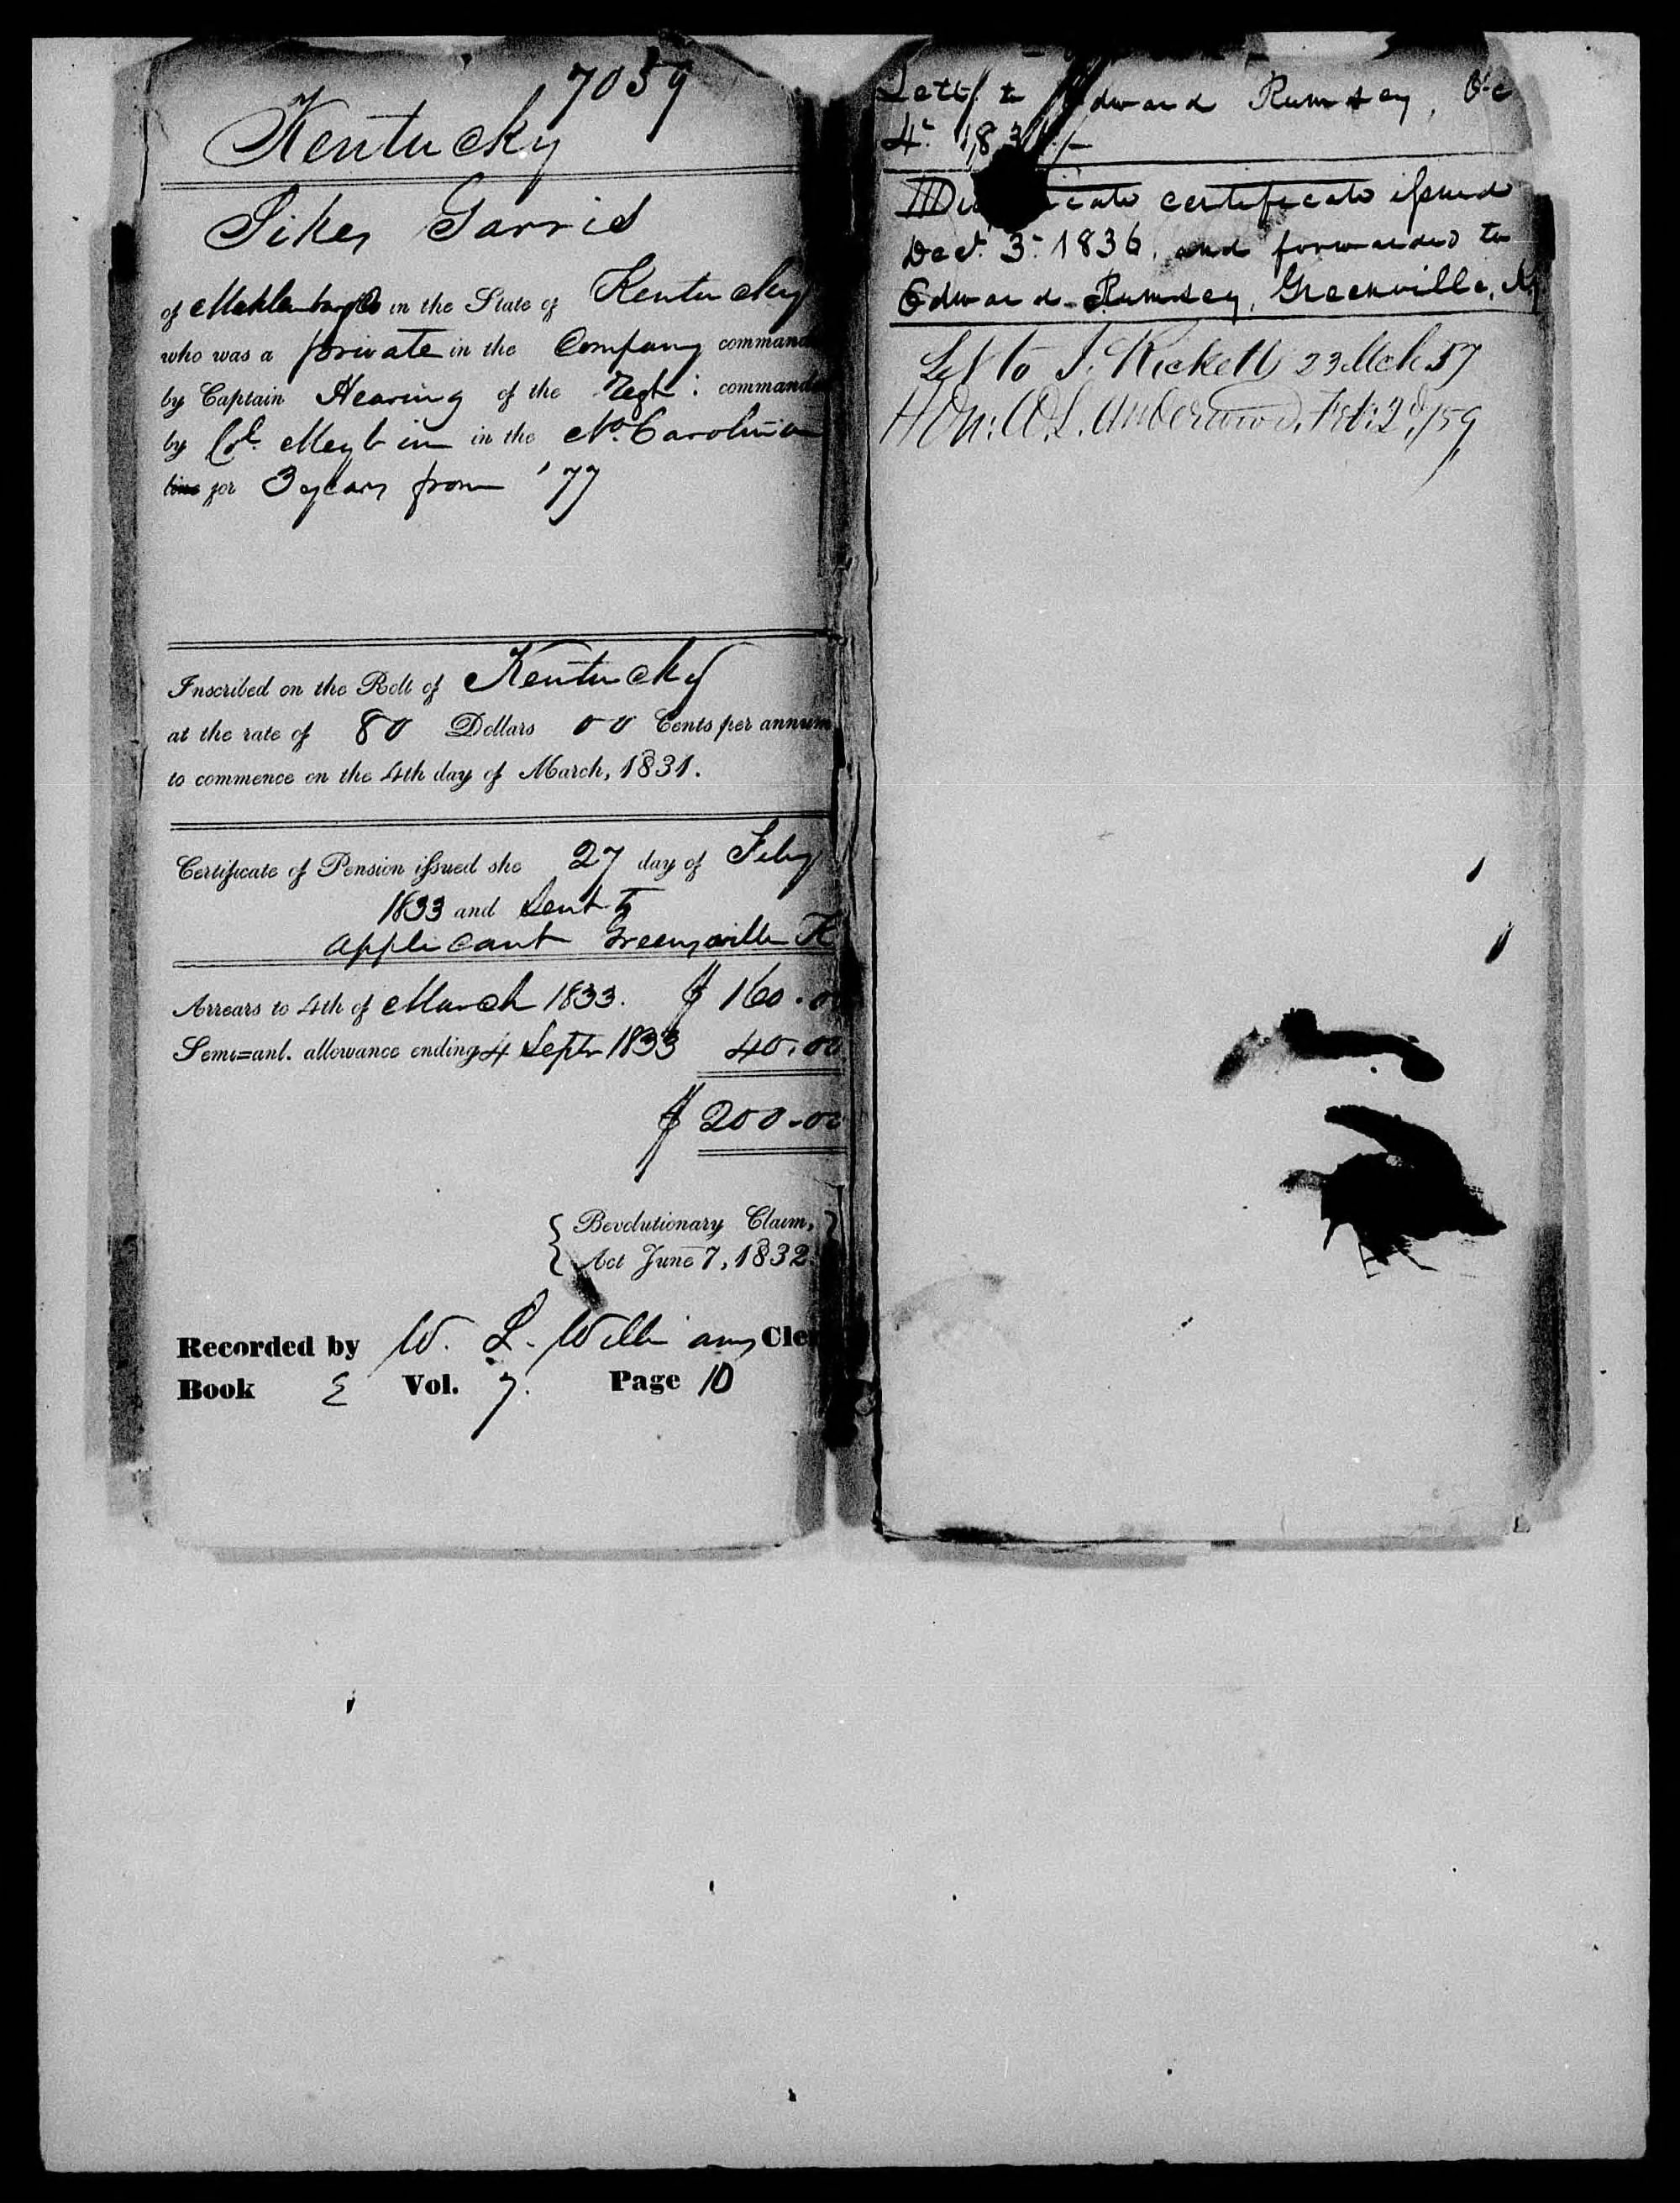 7059
Kentucky
Sikes Garris
of in the State of Kentucky
who was a private in the Company command
by Captain Hearing of the Regt. command
by Col. Meybin in the No. Carolina
line for 3 years from '77
Inscribed on the Roll of Kentucky
at the rate of 80 Dollars 00 Cents per annum
to commence on the 4th day of March, 1831.
Certificate of Pension issued the 27 day of Feby
1833 and sent to
applicant Greenville K
Arrears to 4th of March 1833. $160.00
Semi=anl. allowance ending 4 Septr 1833 40.00
$200.00
{ Revolutionary Claim, }
{ Act June 7, 1832. }
Recorded by W. L. Williams Cler
Book E Vol. 7. Page 10
to Edward Rumsey,
4.
certificate issued
Decr. 3. 1836, and forwarded to
Edward Rumsey, Greenville, Ky
Let to J. Ricketts 23 Mch 57
Hon: W. L. Underwood, Feb: 2d, /59